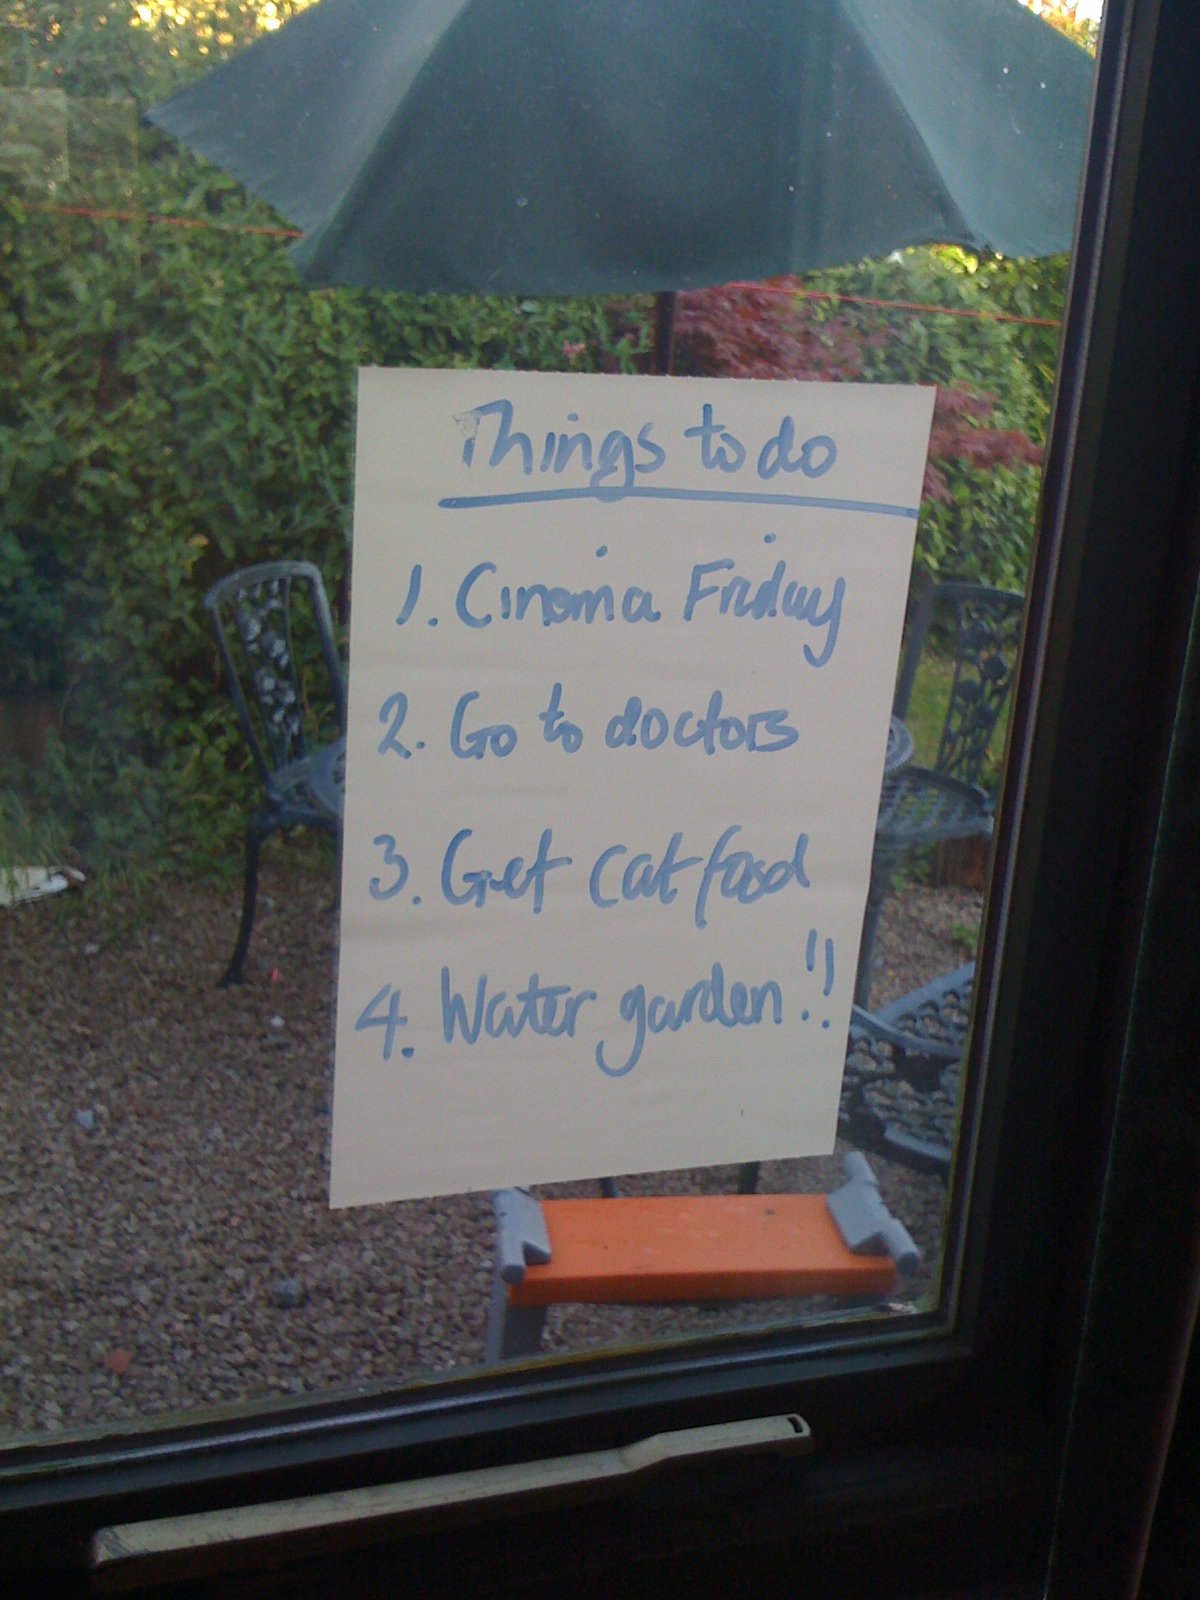 Things to do
1. Cinema Friday
2. Go to doctors
3. Get cat food
4. Water garden!!